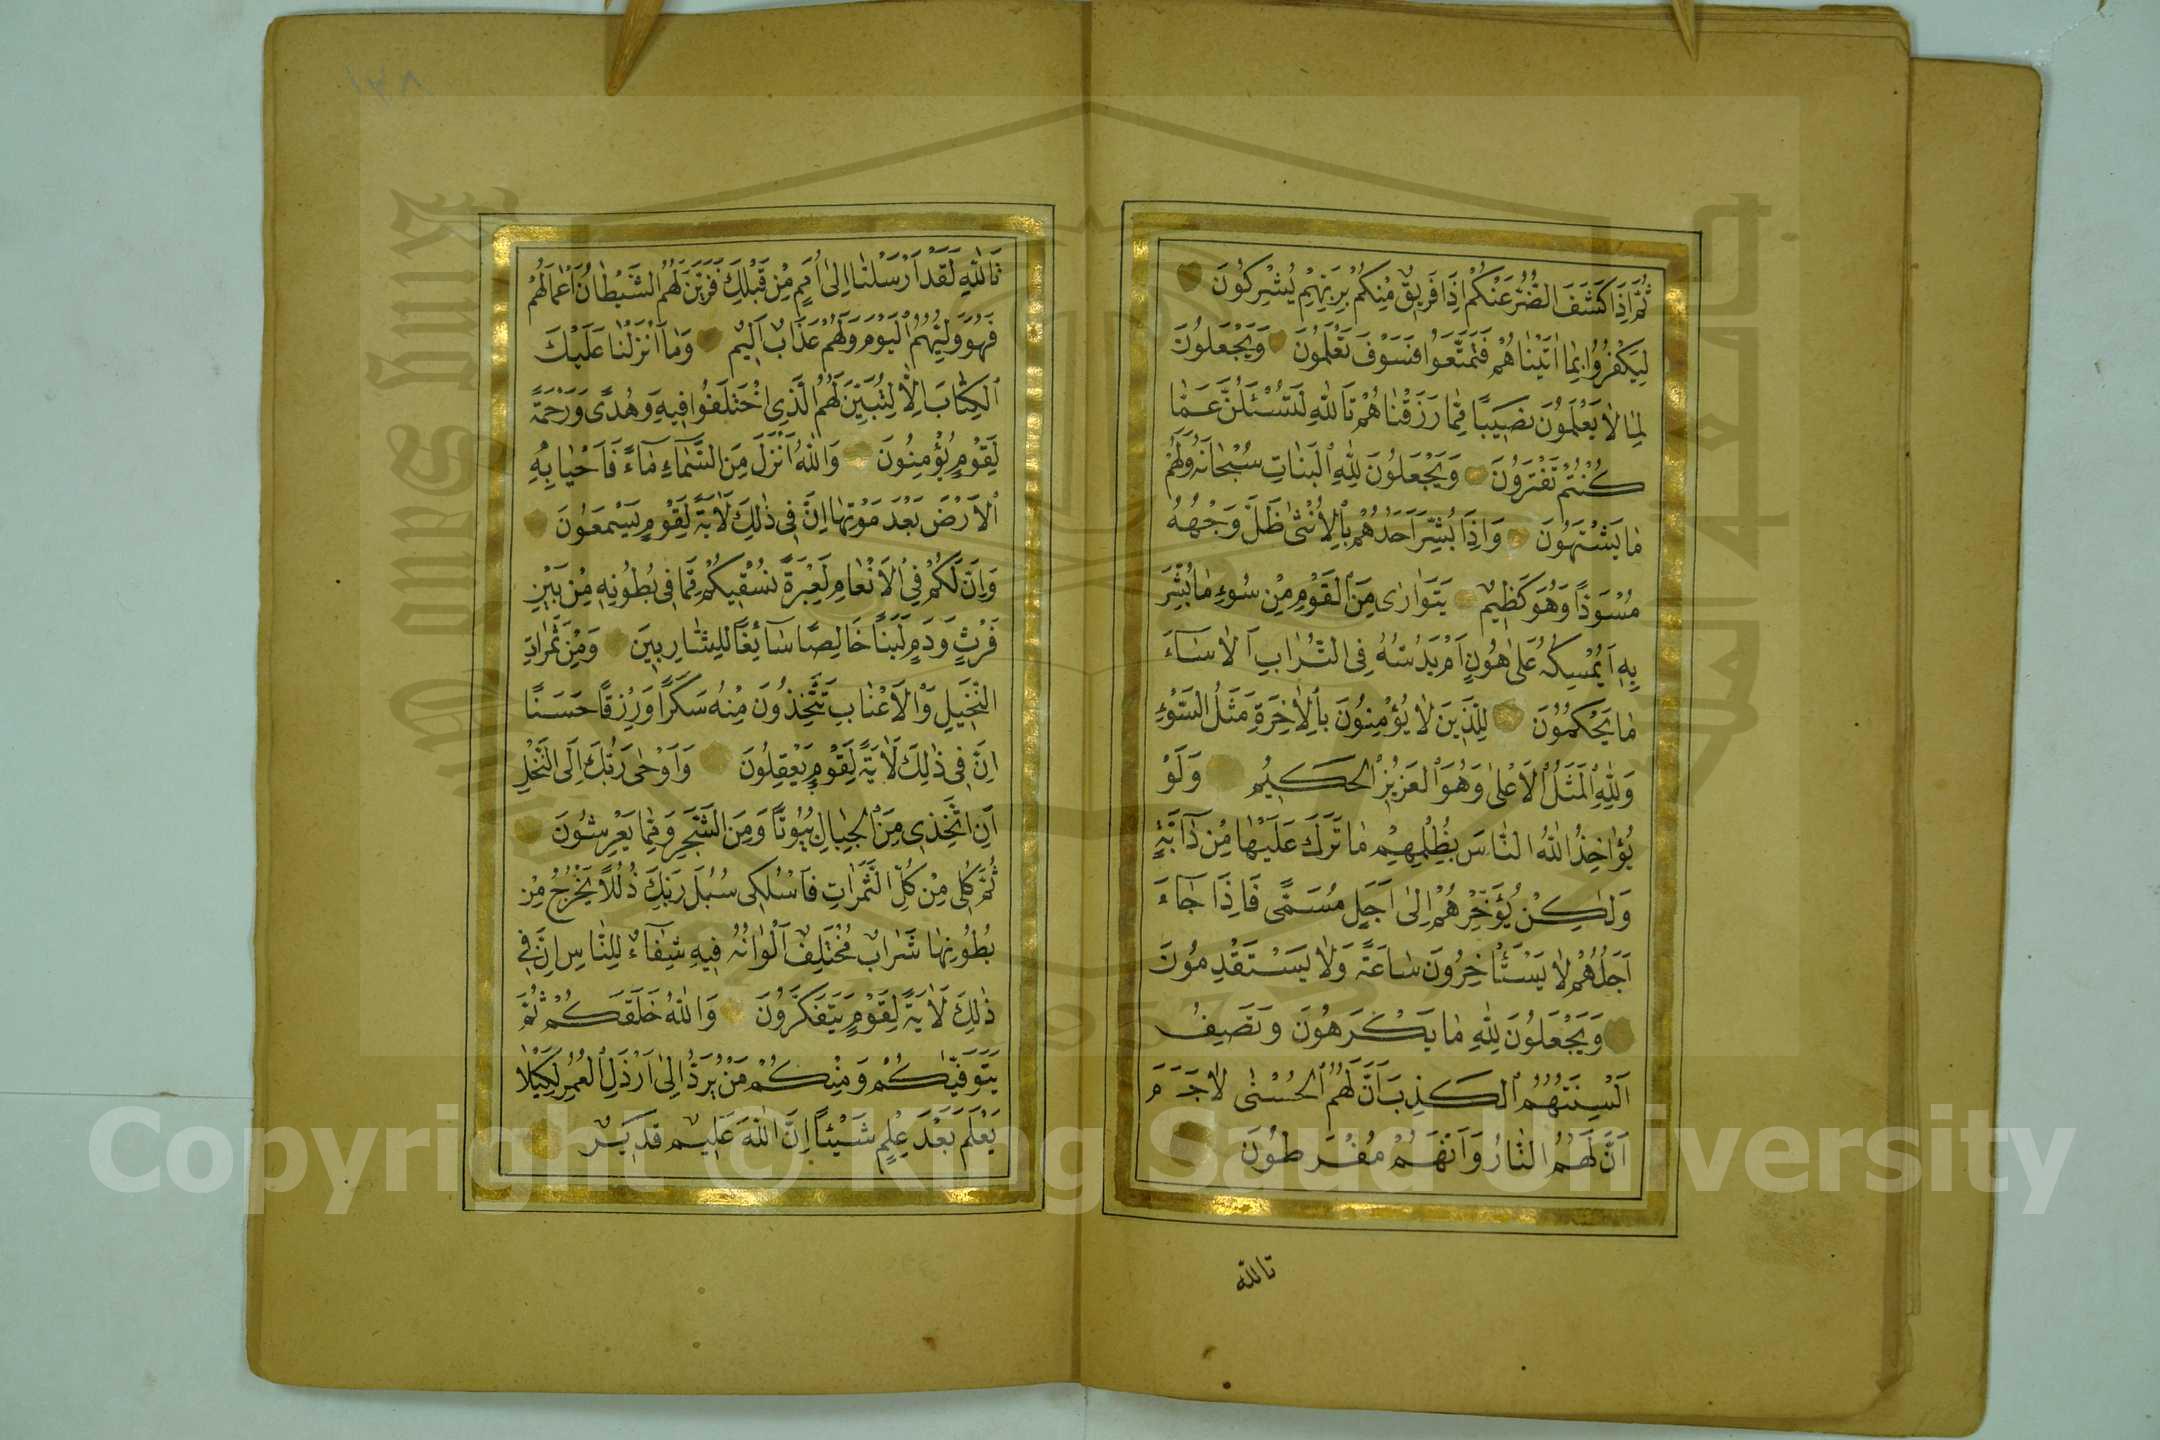 ثُمَّ اِذَا كَشَفَ الضُّرَّ عَنْكُمْ اِذَا فَرِيقٌ مِنْكُمْ بِرَبِّهِمْ يُشْرِكُونَ
لِيَكْفُرُوا بِمَا اٰتَيْنَاهُمْ فَتَمَتَّعُوا فَسَوْفَ تَعْلَمُونَ وَيَجْعَلُونَ
لِمَا لَا يَعْلَمُونَ نَصِيبًا مِمَّا رَزَقْنَاهُمْ تَاللّٰهِ لَتُسْئَلُنَّ عَمَّا
كُنْتُمْ تَفْتَرُونَ وَيَجْعَلُونَ لِلّٰهِ الْبَنَاتِ سُبْحَانَهُ وَلَهُمْ
مَا يَشْتَهُونَ وَاِذَا بُشِّرَ اَحَدُهُمْ بِالْاُنْثٰى ظَلَّ وَجْهُهُ
مُسْوَدًّا وَهُوَ كَظِيمٌ يَتَوَارٰى مِنَ الْقَوْمِ مِنْ سُوءِ مَا بُشِّرَ
بِهِ اَيُمْسِكُهُ عَلٰى هُونٍ اَمْ يَدُسُّهُ فِى التُّرَابِ اَلَا سَآءَ
مَا يَحْكُمُونَ لِلَّذِينَ لَا يُؤْمِنُونَ بِالْاٰخِرَةِ مَثَلُ السَّوْءِ
وَلِلّٰهِ الْمَثَلُ الْاَعْلٰى وَهُوَ الْعَزِيزُ الْحَكِيمُ وَلَوْ
يُؤَاخِذُ اللّٰهُ النَّاسَ بِظُلْمِهِمْ مَا تَرَكَ عَلَيْهَا مِنْ دَآبَّةٍ
وَلٰكِنْ يُؤَخِّرُهُمْ اِلٰى اَجَلٍ مُسَمًّى فَاِذَا جَآءَ
اَجَلُهُمْ لَا يَسْتَأْخِرُونَ سَاعَةً وَلَا يَسْتَقْدِمُونَ
وَيَجْعَلُونَ لِلّٰهِ مَا يَكْرَهُونَ وَتَصِفُ
اَلْسِنَتُهُمُ الْكَذِبَ اَنَّ لَهُمُ الْحُسْنٰى لَا جَرَمَ
اَنَّ لَهُمُ النَّارَ وَاَنَّهُمْ مُفْرَطُونَ
تالله
تَاللّٰهِ لَقَدْ اَرْسَلْنَا اِلٰى اُمَمٍ مِنْ قَبْلِكَ فَزَيَّنَ لَهُمُ الشَّيْطَانُ اَعْمَالَهُمْ
فَهُوَ وَلِيُّهُمُ الْيَوْمَ وَلَهُمْ عَذَابٌ اَلِيمٌ وَمَا اَنْزَلْنَا عَلَيْكَ
الْكِتَابَ اِلَّا لِتُبَيِّنَ لَهُمُ الَّذِى اخْتَلَفُوا فِيهِ وَهُدًى وَرَحْمَةً
لِقَوْمٍ يُؤْمِنُونَ وَاللّٰهُ اَنْزَلَ مِنَ السَّمَاءِ مَآءً فَاَحْيَا بِهِ
الْاَرْضَ بَعْدَ مَوْتِهَا اِنَّ فِى ذٰلِكَ لَاٰيَةً لِقَوْمٍ يَسْمَعُونَ
وَاِنَّ لَكُمْ فِى الْاَنْعَامِ لَعِبْرَةً نُسْقِيكُمْ مِمَّا فِى بُطُونِهِ مِنْ بَيْنِ
فَرْثٍ وَدَمٍ لَبَنًا خَالِصًا سَآئِغًا لِلشَّارِبِينَ وَمِنْ ثَمَرَاتِ
النَّخِيلِ وَالْاَعْنَابِ تَتَّخِذُونَ مِنْهُ سَكَرًا وَرِزْقًا حَسَنًا
اِنَّ فِى ذٰلِكَ لَاٰيَةً لِقَوْمٍ يَعْقِلُونَ وَاَوْحٰى رَبُّكَ اِلَى النَّحْلِ
اَنِ اتَّخِذِى مِنَ الْجِبَالِ بُيُوتًا وَمِنَ الشَّجَرِ وَمِمَّا يَعْرِشُونَ
ثُمَّ كُلِى مِنْ كُلِّ الثَّمَرَاتِ فَاسْلُكِى سُبُلَ رَبِّكِ ذُلُلًا يَخْرُجُ مِنْ
بُطُونِهَا شَرَابٌ مُخْتَلِفٌ اَلْوَانُهُ فِيهِ شِفَآءٌ لِلنَّاسِ اِنَّ فِى
ذٰلِكَ لَاٰيَةً لِقَوْمٍ يَتَفَكَّرُونَ وَاللّٰهُ خَلَقَكُمْ ثُمَّ
يَتَوَفّٰيكُمْ وَمِنْكُمْ مَنْ يُرَدُّ اِلٰى اَرْذَلِ الْعُمُرِ لِكَيْلَا
يَعْلَمَ بَعْدَ عِلْمٍ شَيْئًا اِنَّ اللّٰهَ عَلِيمٌ قَدِيرٌ
Copyright © King Saud University
King Saud University
1957